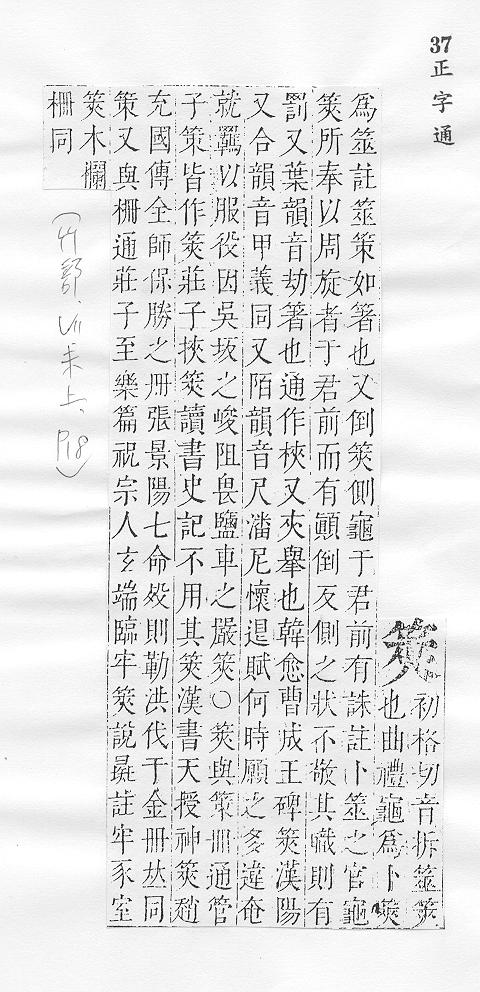 37正字通
筴
初格切音拆筮筴
也曲禮龜爲卜筴
爲筮註筮策如箸也又倒筴側龜于君前有誅註卜筮之官龜
筴所奉以周旋者于君前而有顚倒反側之狀不敬其職則有
罰又葉韻音劫箸也通作梜又夾舉也韓愈曹成王碑筴漢陽
又合韻音甲義同又陌韻音尺潘尼懷退賦何時願之多違奄
就羈以服役因吳坂之峻阻畏鹽車之嚴筴○筴與策冊通管
子策皆作筴莊子挾筴讀書史記不用其筴漢書天授神筴趙
充國傳全師保勝之冊張景陽七命殁則勒洪伐于金冊𠀤同
策又與柵通莊子至樂篇祝宗人玄端臨牢筴說彘註牢豕室
筴木欄
柵同
（竹部、未上、P18）